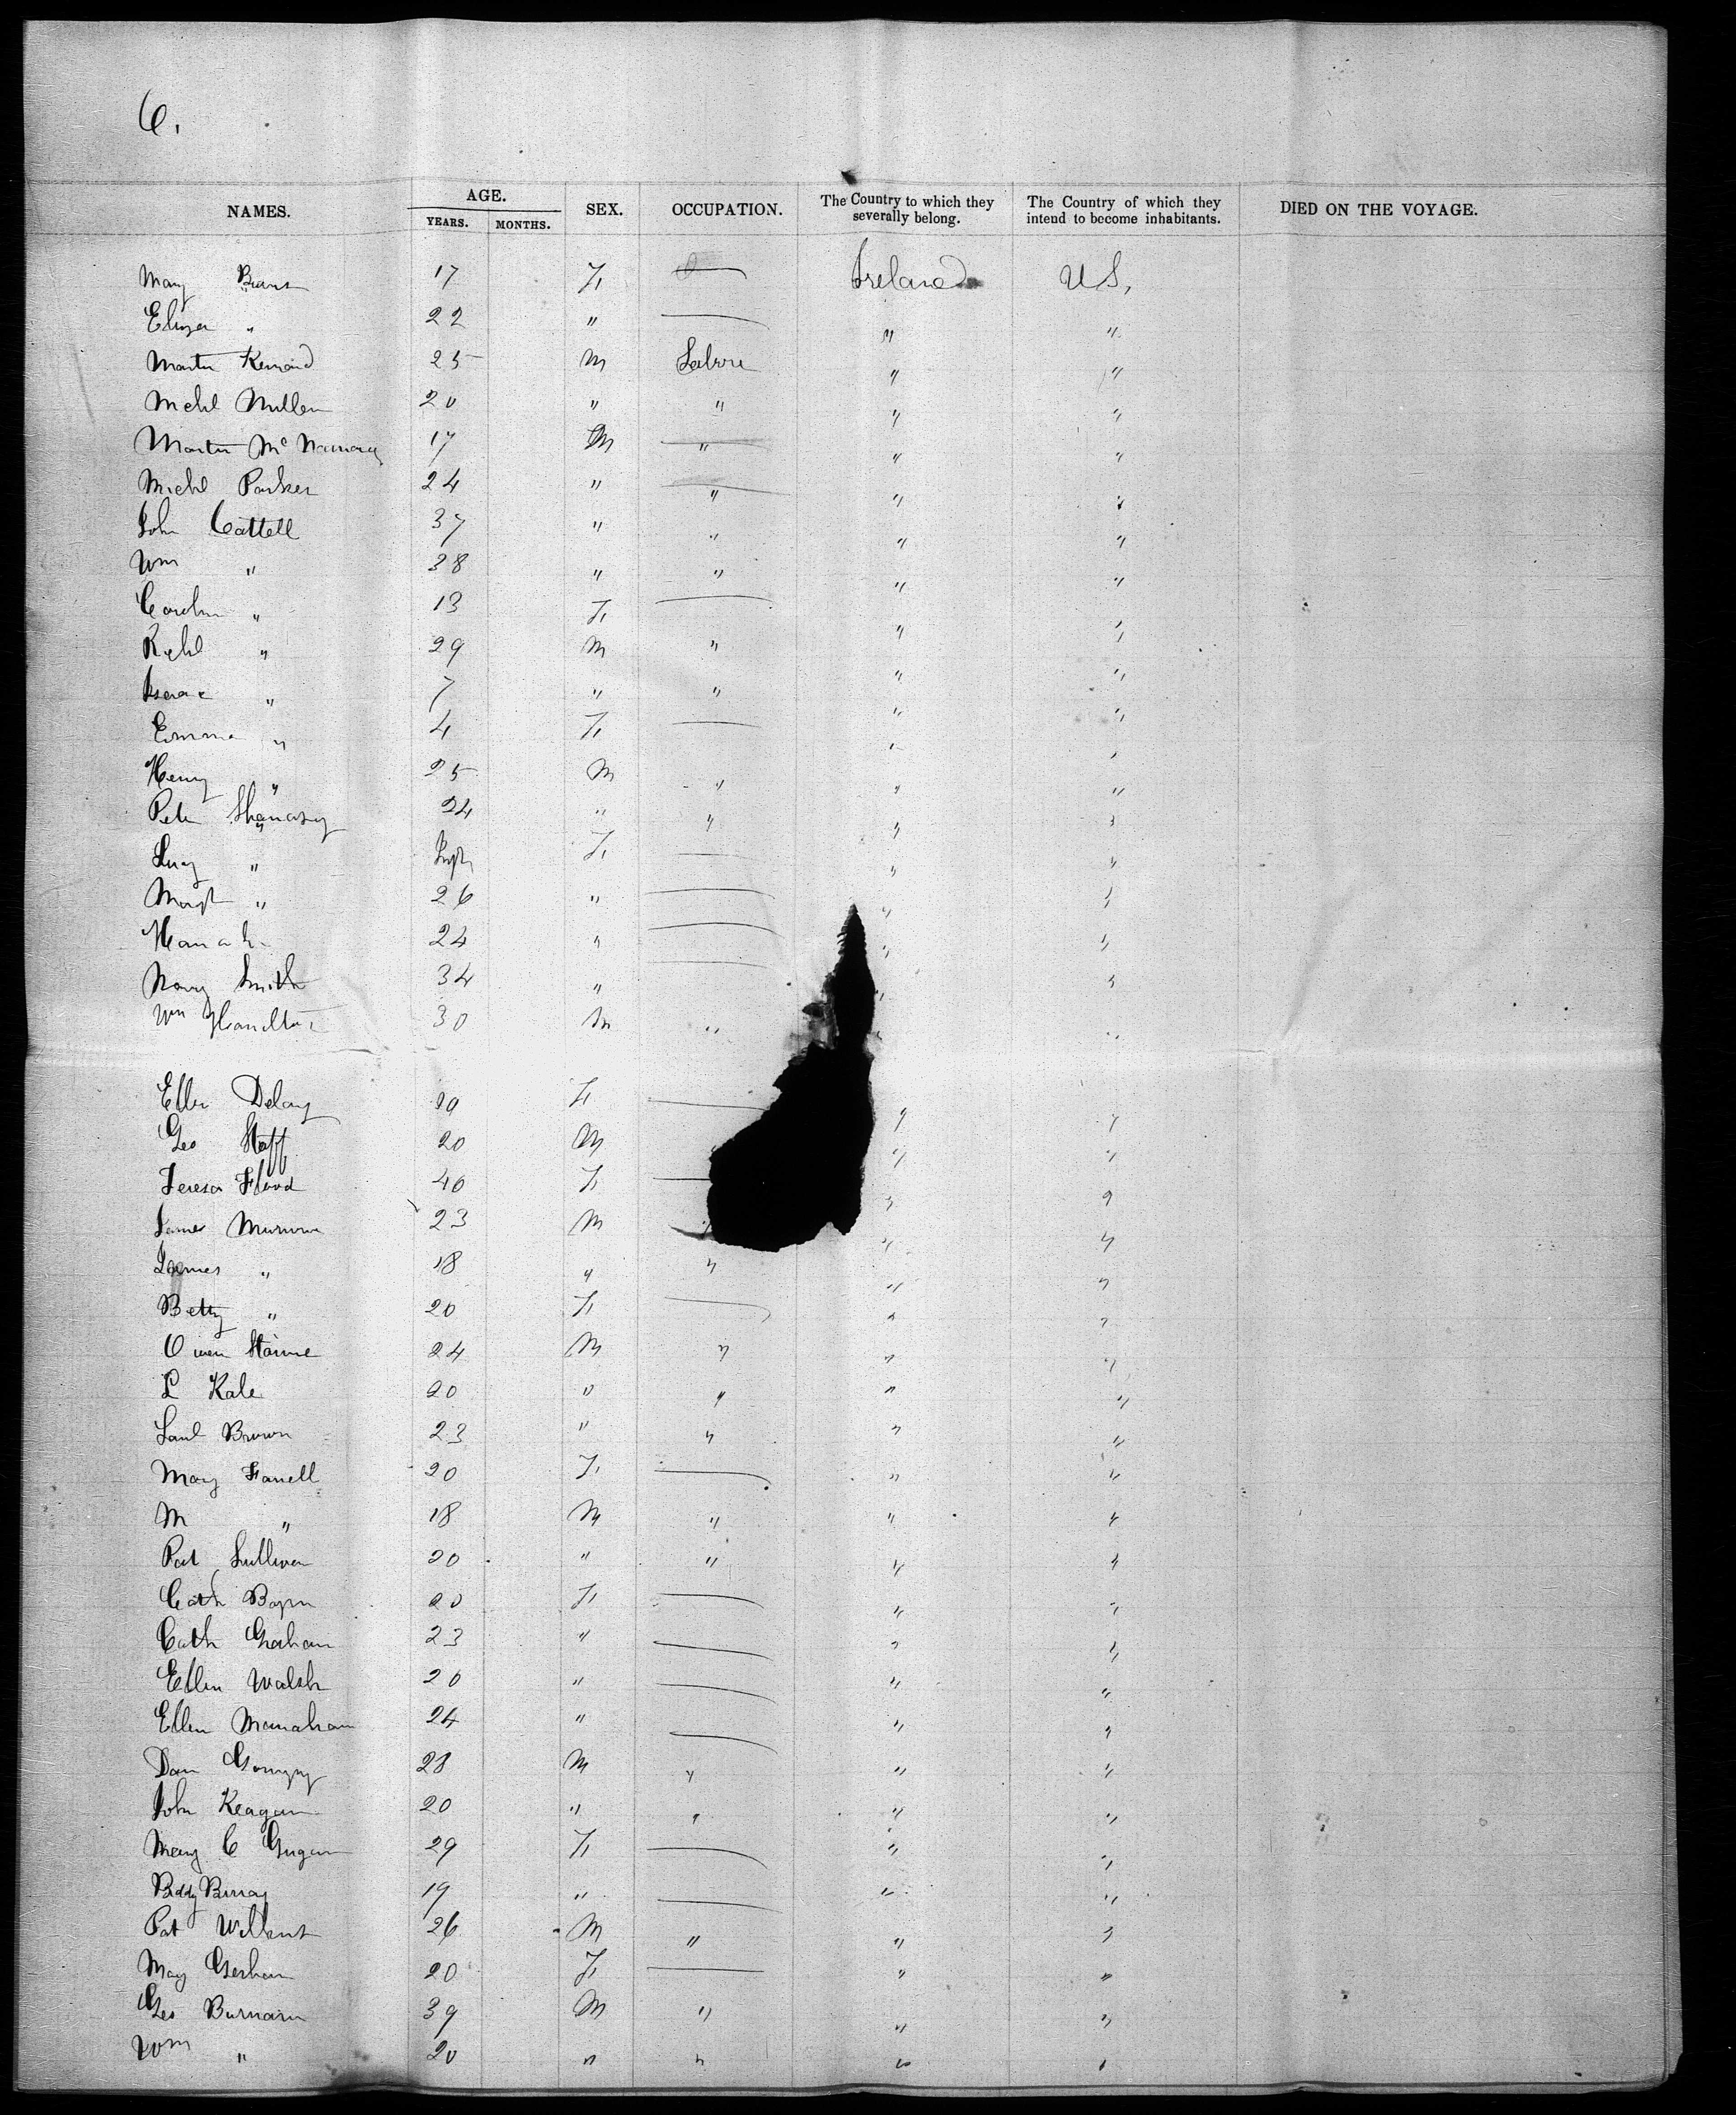 6.
NAMES. AGE. YEARS. MONTHS. SEX. OCCUPATION. The Country to which they severally belong. The Country of which they intend to become inhabitants. DIED ON THE VOYAGE.
Mary Burns 17 F. — Ireland U S,
Eliza " 22 " — " "
Martin 25 M Labore " "
Michl Mullen 20 " " " "
Martin Mc Namara 17 M " " "
Michl Parker 24 " " " "
John Cattell 37 " " " "
Wm " 38 " " " "
Carolin " 13 F. — " "
Richd " 29 M " " "
Isaac " 7 " " " "
Emma " 4 F. — " "
Henry " 25 M " " "
Peter Shanasy 24 " " " "
Lucy " F. — " "
Margt " 26 " — " "
Hanah 24 " — " "
Mary Smith 34 " — " "
Wm Hamilton 30 M " " "
Ellen Delany F. — " "
Geo Staff 20 M " "
Teresa Flood 40 F. — " "
James 23 M " " "
James " 18 " " " "
Betty " 20 F. — " "
Owen 24 M " " "
L Kale 20 " " " "
Saml Brown 23 " " " "
Mary Farrell 20 F. — " "
M " 18 M " " "
Pat Sullivan 20 " " " "
Cath 20 F. — " "
Cath Graham 23 " — " "
Ellen Walsh 20 " — " "
Ellen Manahan 24 " — " "
Dan 28 M " " "
John Keagan 20 " " " "
Mary C 29 F. — " "
Biddy 19 " — " "
Pat 26 M " " "
Mary 20 F. — " "
Geo Burnam 39 M " " "
Wm " 20 " " " "